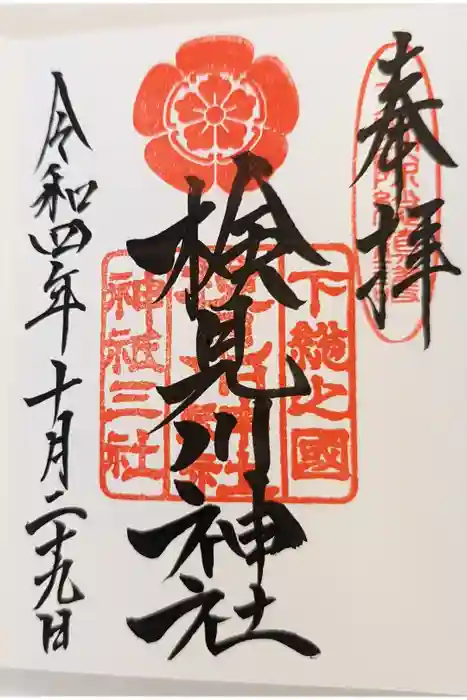 奉拝
下総之國
検見川神社
神祇三社
令和四年十月二十九日